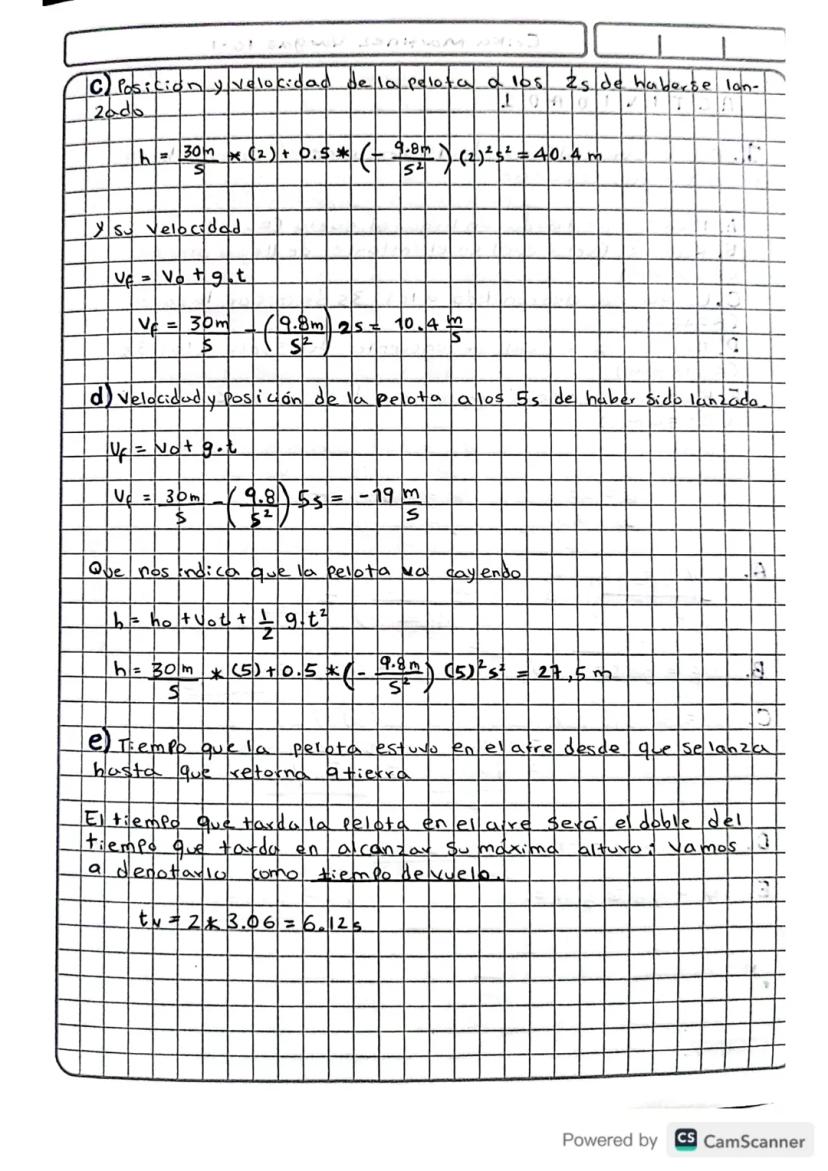 c) Posición y velocidad de la pelota a los 2s de haberse lan-
zado
h = 30m/s * (2) + 0.5 * (- 9.8m/s²) (2)²s² = 40.4 m
y su velocidad
Vf = Vo + g.t
Vf = 30m/s - (9.8m/s²) 2s = 10.4 m/s
d) Velocidad y posición de la pelota a los 5s de haber sido lanzada.
Vf = Vo + g.t
Vf = 30m/s - (9.8/s²) 5s = -19 m/s
Que nos indica que la pelota va cayendo
h = ho + Vot + 1/2 g.t²
h = 30m/s * (5) + 0.5 * (- 9.8m/s²) (5)²s² = 27,5 m
e) Tiempo que la pelota estuvo en el aire desde que se lanza
hasta que retorna a tierra
El tiempo que tarda la pelota en el aire será el doble del
tiempo que tarda en alcanzar su máxima altura; vamos
a denotarlo como tiempo de vuelo.
tv = 2 * 3.06 = 6.12s
Powered by CS CamScanner